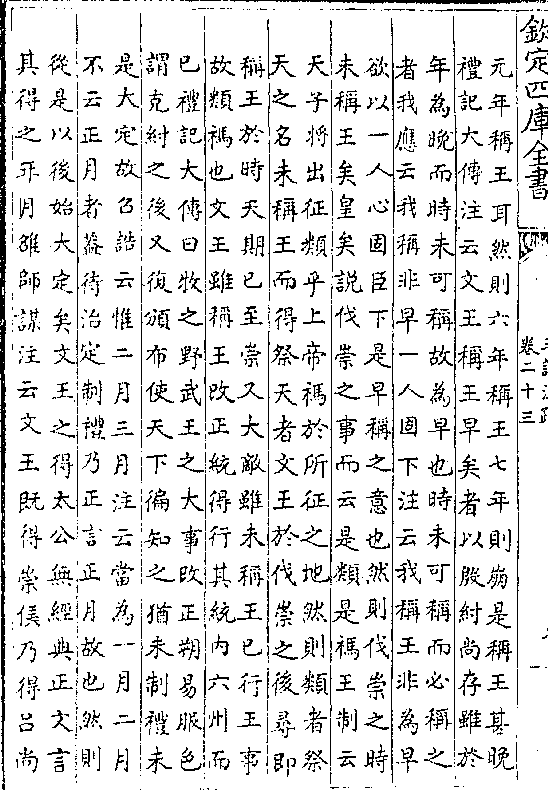 欽定四庫全書
卷二十三
元年稱王耳然則六年稱王七年則崩是稱王甚晚
禮記大傳注云文王稱王早矣者以殷紂尚存雖於
年為晚而時未可稱故為早也時未可稱而必稱之
者我應云我稱非早一人固下注云我稱王非為早
欲以一人心固臣下是早稱之意也然則伐崇之時
未稱王矣皇矣説伐崇之事而云是類是禡王制云
天子將出征類乎上帝禡於所征之地然則類者祭
天之名未稱王而得祭天者文王於伐崇之後尋即
稱王於時天期已至崇又大敵雖未稱王已行王事
故類禡也文王雖稱王改正統得行其統内六州而
已禮記大傳曰牧之野武王之大事改正朔易服色
謂克紂之後又復頒布使天下徧知之猶未制禮未
是大定故召誥云惟二月三月注云當為一月二月
不云正月者蓋待治定制禮乃正言正月故也然則
從是以後始大定矣文王之得太公無經典正文言
其得之年月雒師謀注云文王既得崇侯乃得吕尚